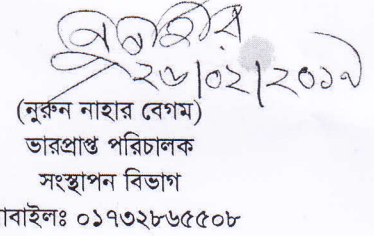 নুরুন নাহার
২৬/০২/২০১৭
(নুরুন নাহার বেগম)
ভারপ্রাপ্ত পরিচালক
সংস্থাপন বিভাগ
াবাইলঃ ০১৭৩২৮৬৫৫০৮